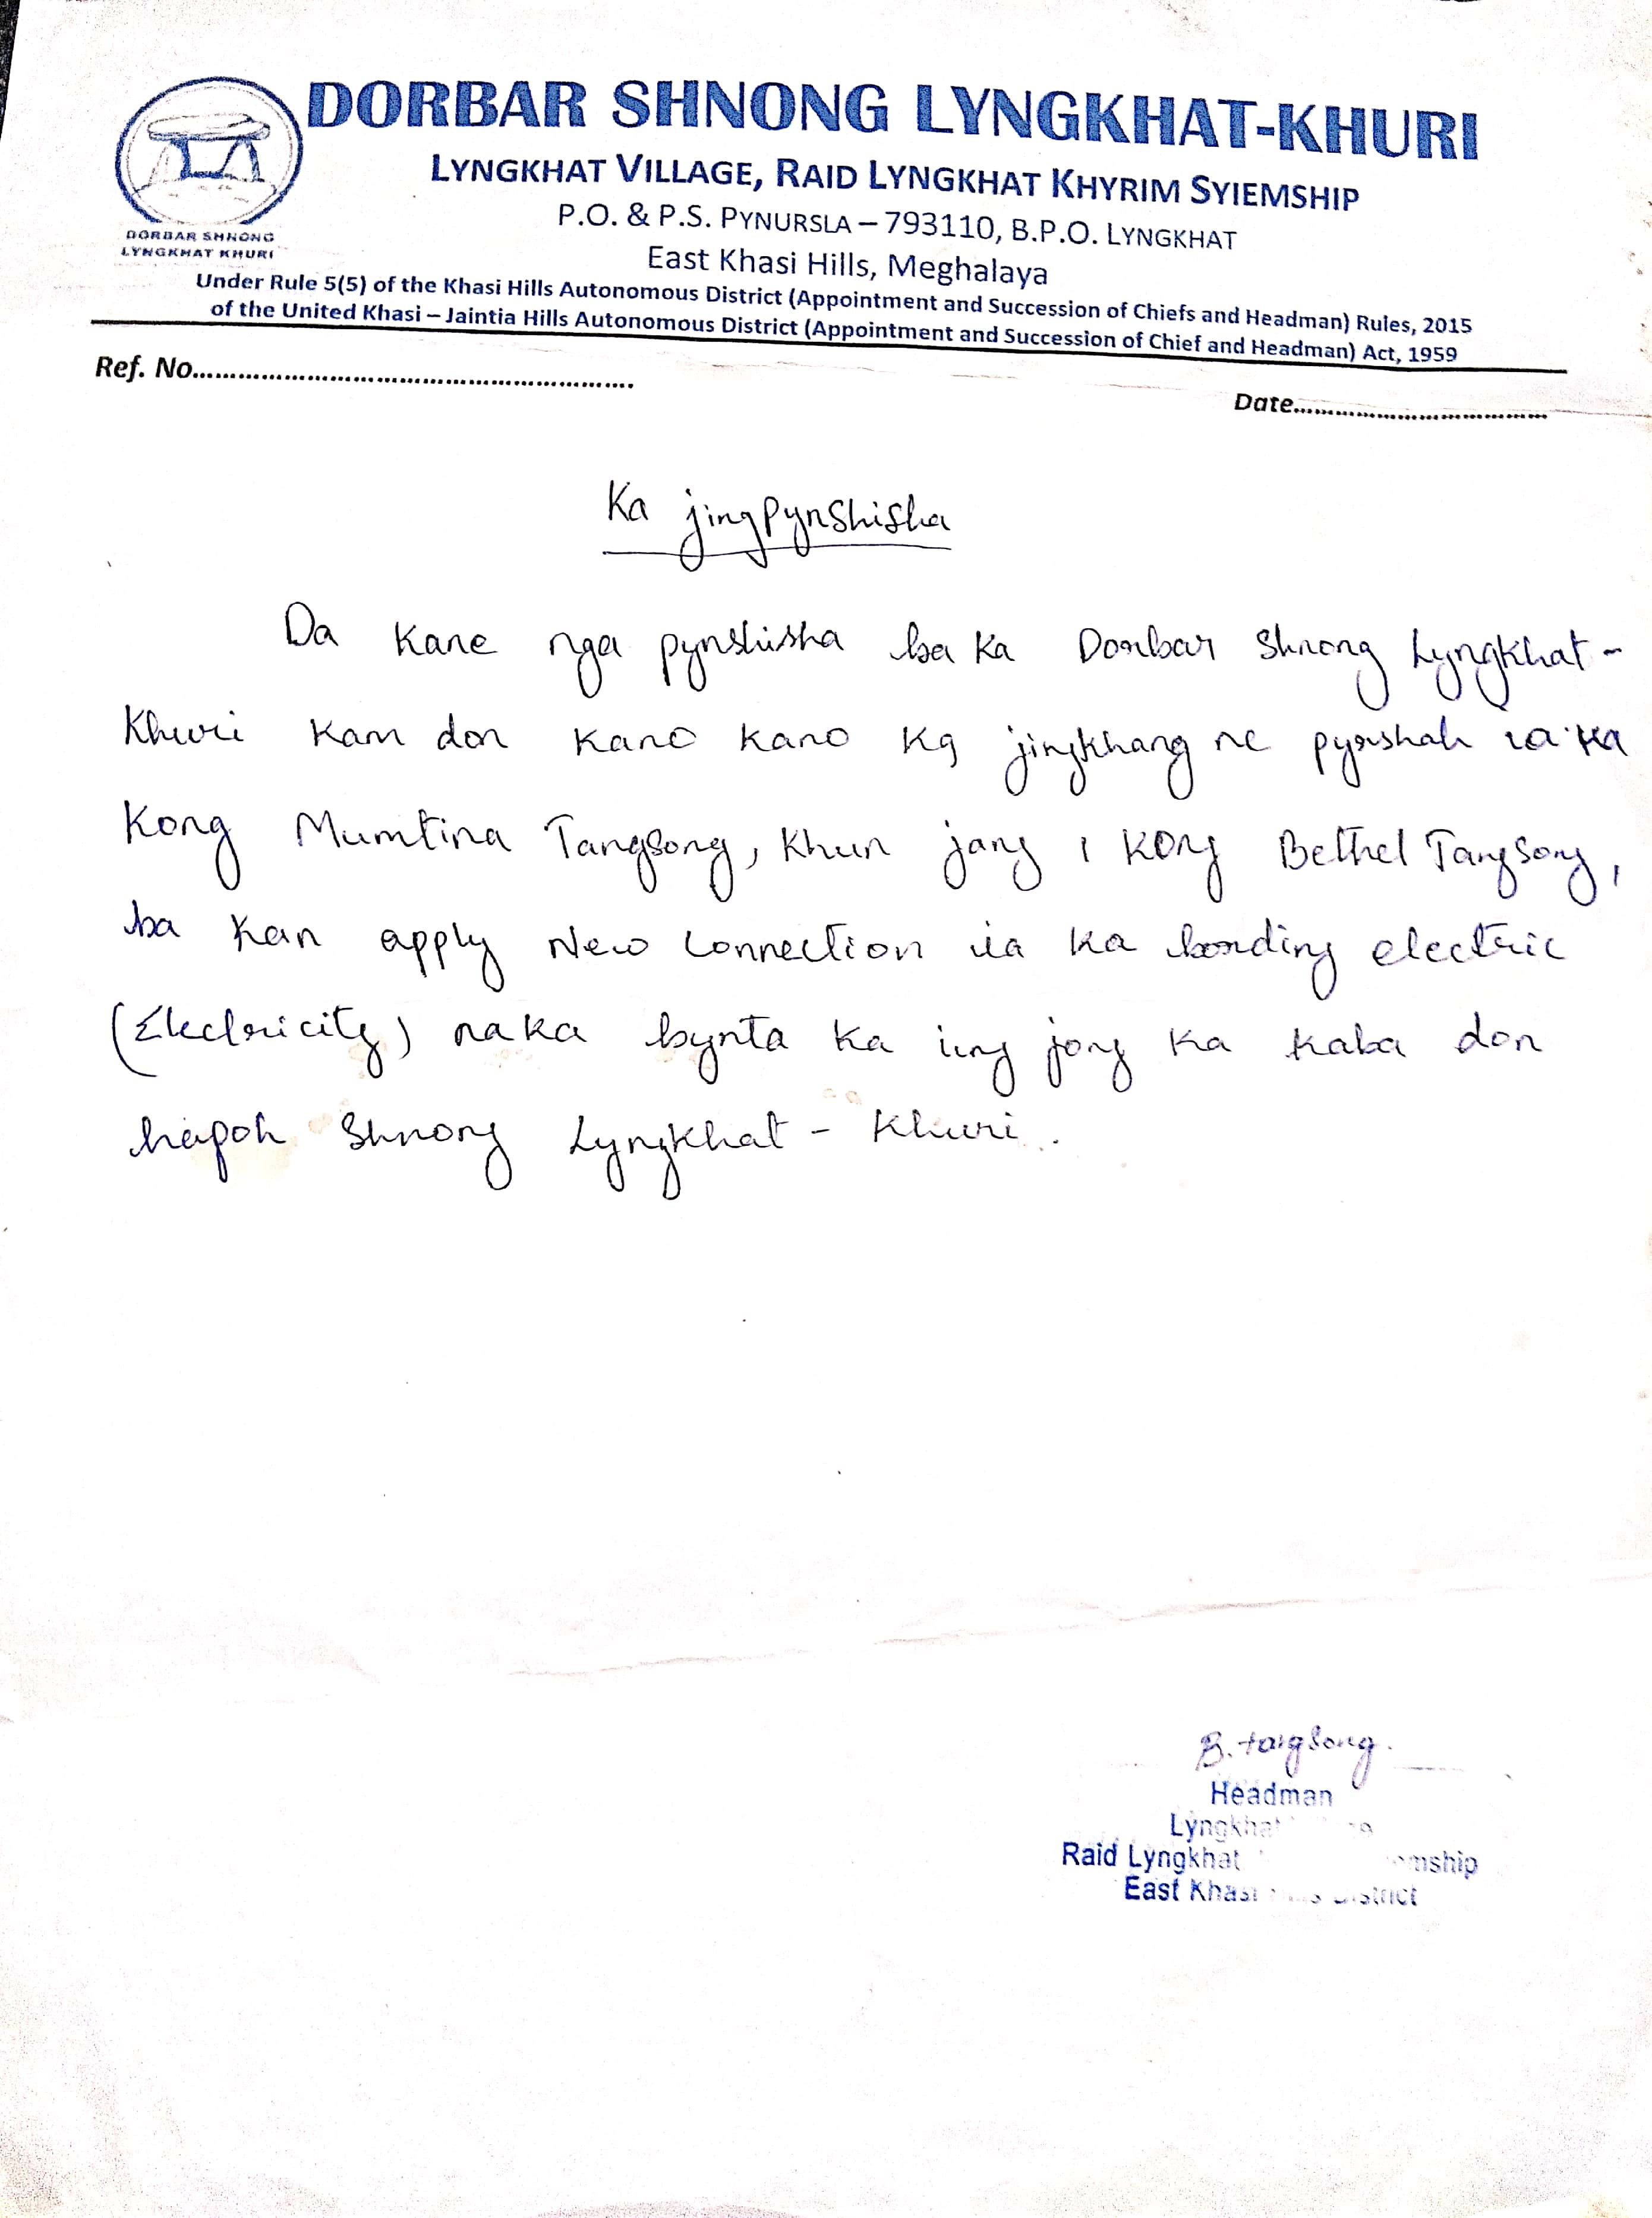 DORBAR SHNONG LYNGKHAT-KHURI
LYNGKHAT VILLAGE, RAID LYNGKHAT KHYRIM SYIEMSHIP
P.O. & P.S. PYNURSLA – 793110, B.P.O. LYNGKHAT
East Khasi Hills, Meghalaya
DORBAR SHNONG
LYNGKHAT KHURI
Under Rule 5(5) of the Khasi Hills Autonomous District (Appointment and Succession of Chiefs and Headman) Rules, 2015
of the United Khasi – Jaintia Hills Autonomous District (Appointment and Succession of Chief and Headman) Act, 1959
Ref. No..........................................................
Date..................................
Ka jingpynshisha
Da kane nga pynshisha ba ka Dorbar Shnong Lyngkhat-
Khuri kam don kano kano ka jingkhang ne pyrshah ia ka
Kong Mumtina Tangsong, khun jong i Kong Bethel Tangsong,
ba kan apply New Connection ia ka bording electric
(Electricity) naka bynta ka iing jong ka kaba don
hapoh Shnong Lyngkhat - Khuri.
B. tangsong.
Headman
Raid Lyngkhat
East Khasi District